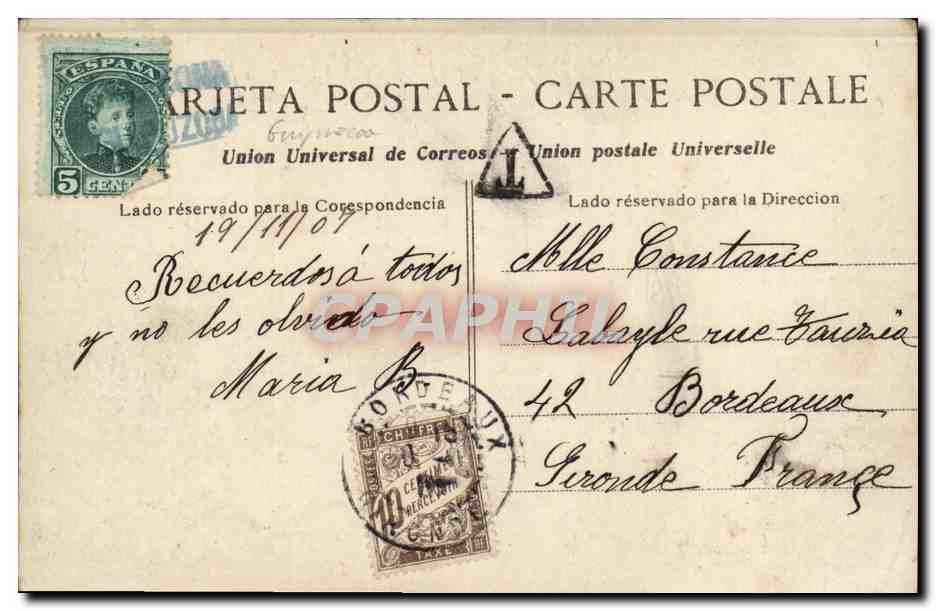 ESPAÑA
5 CENT
TARJETA POSTAL - CARTE POSTALE
Union Universal de Correos - Union postale Universelle
T
Lado réservado para la Corespondencia
Lado réservado para la Direccion
19/11/07
Recuerdos á todos
y no les olvido
Maria B
Mlle Constance
Labayle rue Tauzia
42 Bordeaux
Gironde France
CPAPHIL
BORDEAUX
CHIFFRE
POSTES
10 CENTIMES
A PERCEVOIR
TAXE
RF